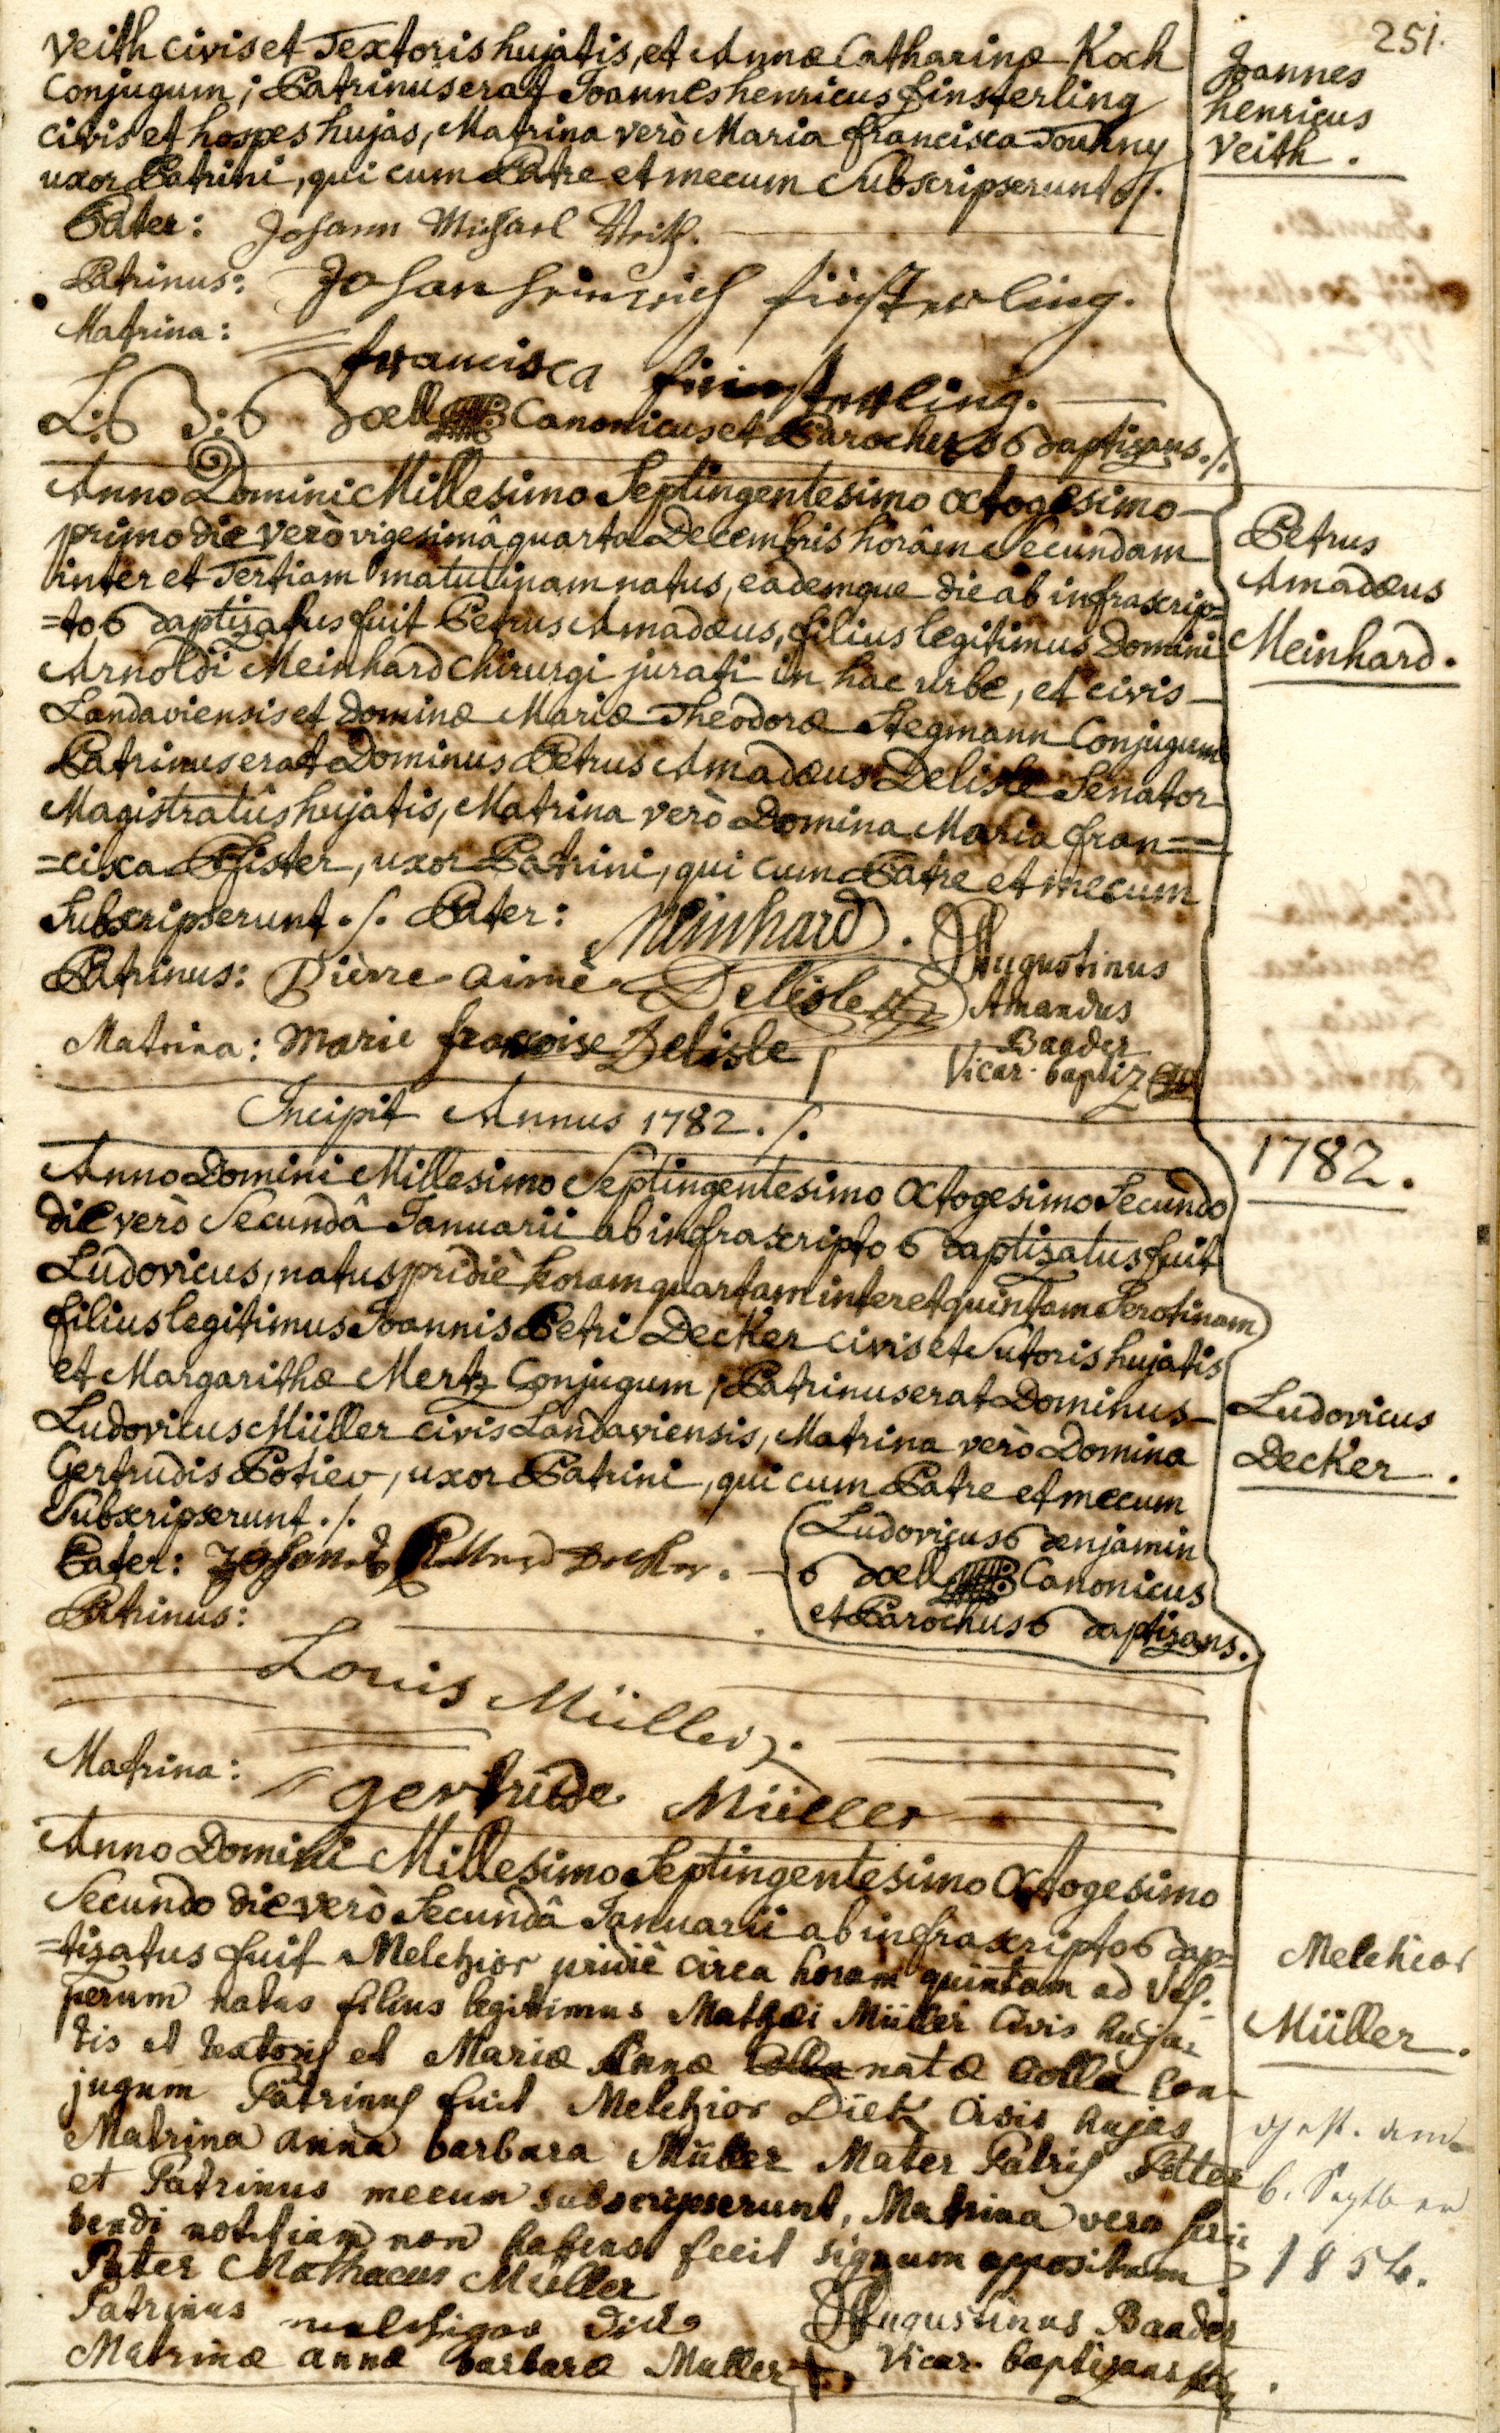 251.
Veith civis et Textoris hujatis, et Annæ Catharinæ Koch
Conjugum; Patrinus erat Joannes henricus finsterling
civis et hospes hujas, Matrina verò Maria francisca Tourny
uxor Patrini, qui cum Patre et mecum Subscripserunt ./.
Joannes
henricus
Veith.
Pater: Johann Michael Veith.
Patrinus: Johan heinrich finsterling.
Matrina: francisca finsterling.
L: B: Boell Canonicus et Parochus Baptizans ./.
Anno Domini Millesimo Septingentesimo octogesimo
primo die verò vigesimâ quarta Decembris horâm Secundam
inter et Tertiam matutinam natus, eademque die ab infrascrip=
=to Baptizatus fuit Petrus Amadæus, filius legitimus Domini
Arnoldi Meinhard Chirurgi jurati in hac urbe, et civis
Landaviensis et Dominæ Mariæ Theodoræ Stegmann Conjugum
Patrinus erat Dominus Petrus Amadæus Delisle Senator
Magistratûs hujatis, Matrina verò Domina Maria fran=
=cisca Pfister, uxor Patrini, qui cum Patre et mecum
Subscripserunt ./. Pater: Meinhard.
Petrus
Amadæus
Meinhard.
Patrinus: Pièrre aimé Delisle
Matrina: Marie françoise Delisle
Augustinus
Amandus
Baader
Vicar. baptiz
Incipit Annus 1782 ./.
1782.
Anno Domini Millesimo Septingentesimo Octogesimo Secundo
die verò Secundâ Januarii ab infrascripto Baptizatus fuit
Ludovicus, natus pridiè horam quartam inter et quintam Serotinam
filius legitimus Joannis Petri Decker civis et Sutoris hujatis
et Margarithæ Mertz Conjugum, Patrinus erat Dominus
Ludovicus Müller civis Landaviensis, Matrina verò Domina
Gertrudis Potiev, uxor Patrini, qui cum Patre et mecum
Subscripserunt ./.
Ludovicus
Decker.
Pater: Johannes Decker.
Ludovicus Benjamin
Boell Canonicus
et Parochus Baptizans.
Patrinus:
Louis Müller.
Matrina: gertrude Müller
Anno Domini Millesimo Septingentesimo Octogesimo
Secundo die verò Secundâ Januarii ab infrascripto Bap=
=tizatus fuit Melchior pridiè circa horam quintam ad Ves-
perum natus filius legitimus Mathæi Müller Civis huja-
tis et textoris et Mariæ Annæ Colla natæ Colla Con-
jugum Patrinus fuit Melchior Dietz Civis hujas
Matrina anna barbara Müller Mater Patris Pater
et Patrinus mecum subscripserunt, Matrina vero scri-
bendi notitiam non habens fecit signum appositum
Melchior
Müller.
gest. am
6. Septber
1854.
Pater Mathaeus Müller
Patrinus melchior Dietz
Matrinæ annæ barbaræ Muller +
Augustinus Baader
Vicar. baptizans